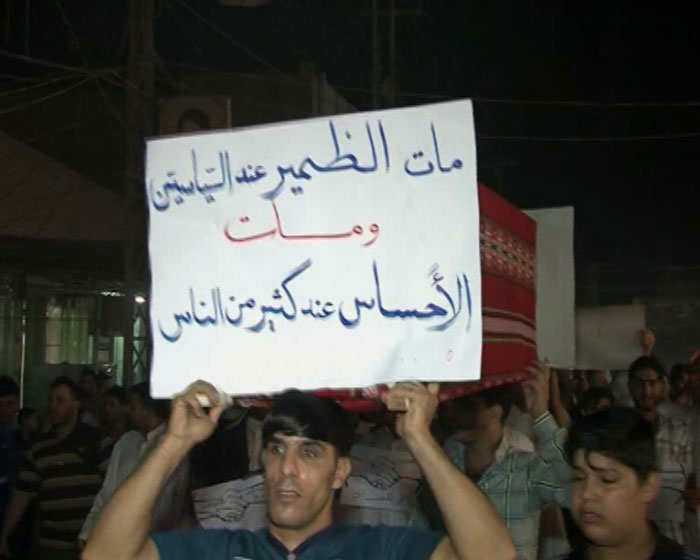 مات الظمير عند السياسيين
ومات
الأحساس عند كثير من الناس